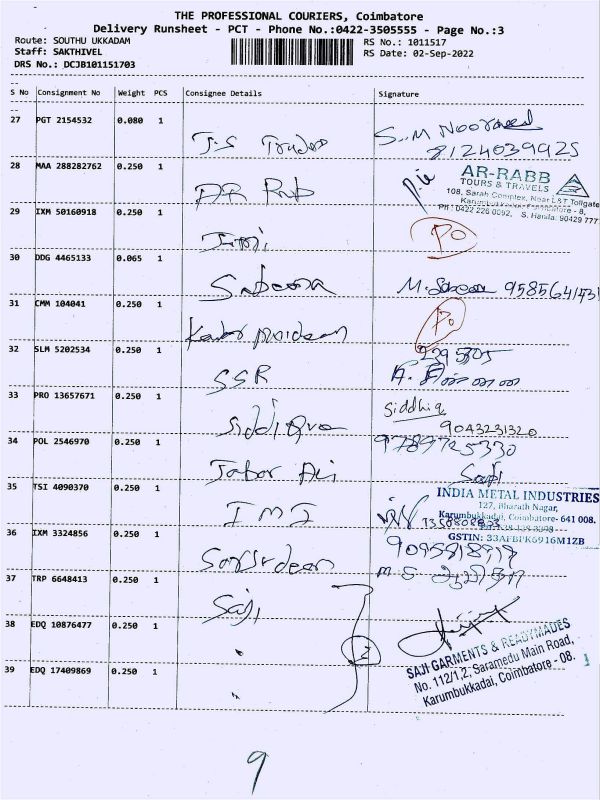 THE PROFESSIONAL COURIERS, Coimbatore
Delivery Runsheet - PCT - Phone No.:0422-3505555 - Page No.:3
Route: SOUTHU UKKADAM RS No.: 1011517
Staff: SAKTHIVEL RS Date: 02-Sep-2022
DRS No.: DCJB101151703
S No Consignment No Weight PCS Consignee Details Signature
27 PGT 2154532 0.080 1
J.S Traders S.M Noor
8124039925
28 MAA 288282762 0.250 1
AR Rub AR-RABB
TOURS & TRAVELS
108, Sarah Complex, Near L&T Tollgate
Karumbukkadai, Coimbatore - 8,
Ph : 0422 226 0092, S. Hanifa: 90429 777
29 IXM 50160918 0.250 1
PO
30 DDG 4465133 0.065 1
Sabeena M. Sabeena
31 CMM 104041 0.250 1
Kadar PO
32 SLM 5202534 0.250 1
SSR
33 PRO 13657671 0.250 1
Siddiqva Siddhiq
9043231320
34 POL 2546970 0.250 1
9789725330
Jabar Ali
35 TSI 4090370 0.250 1
I M I INDIA METAL INDUSTRIES
127, Bharath Nagar,
Karumbukkadai, Coimbatore- 641 008.
GSTIN: 33AFBPK6916M1ZB
36 IXM 3324856 0.250 1
37 TRP 6648413 0.250 1
Saji
38 EDQ 10876477 0.250 1
" SAJI GARMENTS & READYMADES
No. 112/1,2, Saramedu Main Road,
Karumbukkadai, Coimbatore - 08.
39 EDQ 17409869 0.250 1
"
9